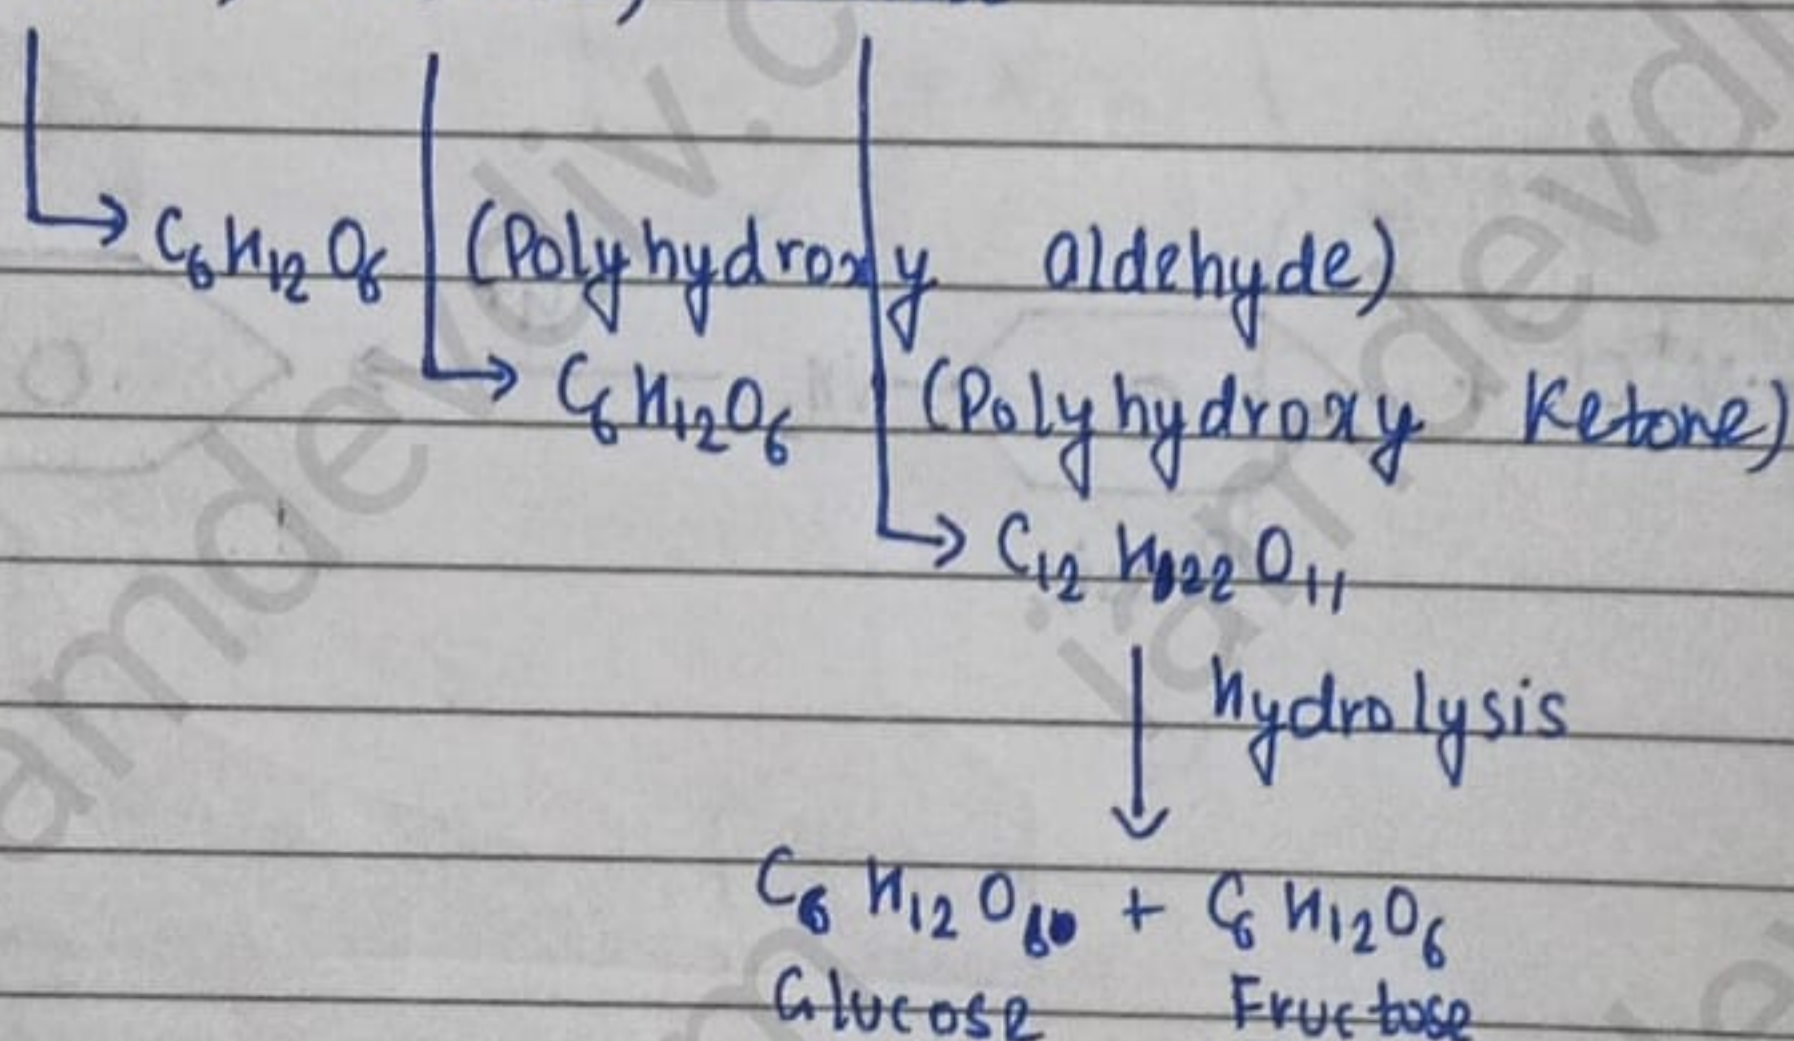 → C₆H₁₂O₆ (Polyhydroxy aldehyde)
→ C₆H₁₂O₆ (Polyhydroxy Ketone)
→ C₁₂H₂₂O₁₁
↓ Hydrolysis
C₆H₁₂O₆ + C₆H₁₂O₆
Glucose Fructose